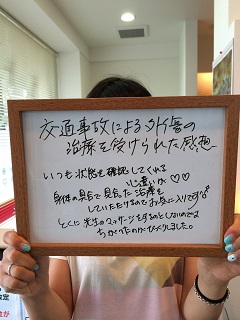 交通事故による外傷の
治療を受けられた感想
いつも状態を確認してくれる
心遣いが♡♡
身体の具合で見合た治療を
していただけるのでお気に入りです
とくに先生のマッサージをするのとしないのでは
ちがったのがびっくりしました。